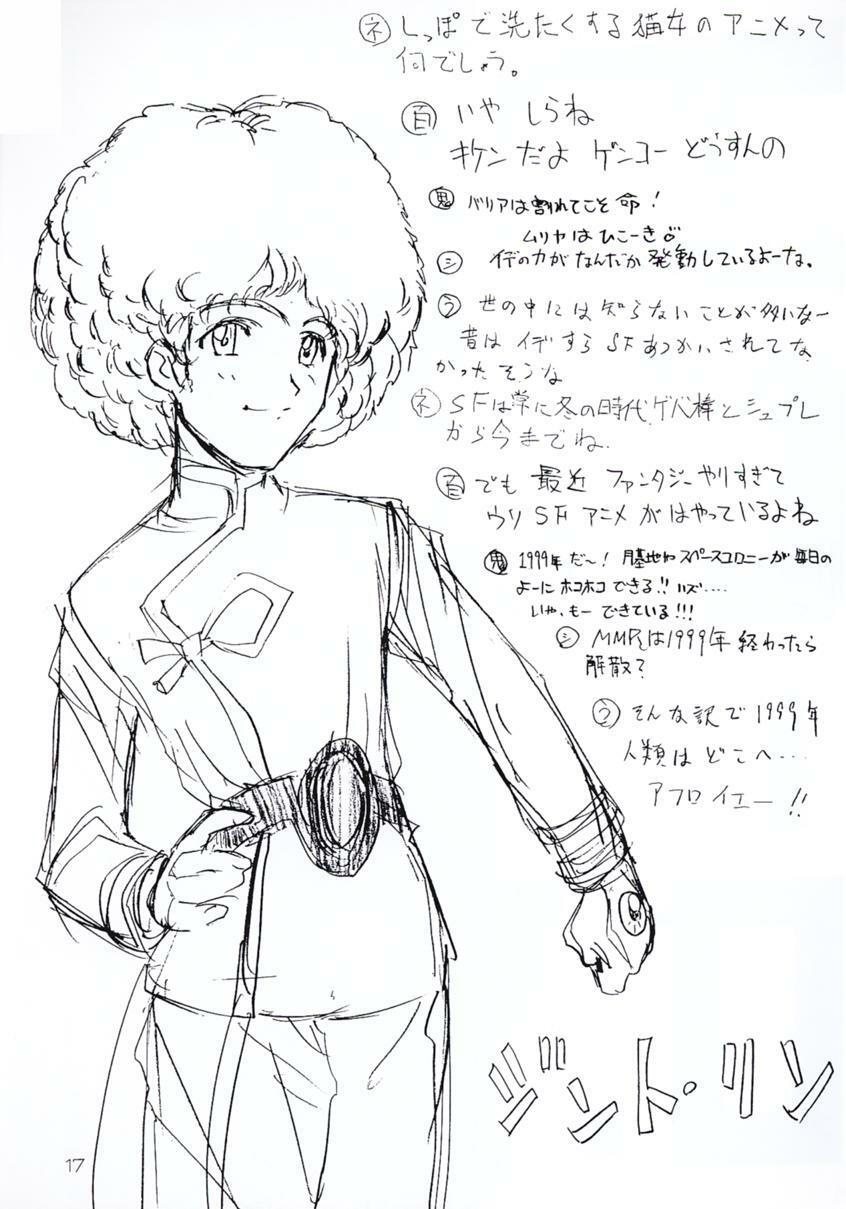 ネ しっぽで洗たくする猫女のアニメって
何でしょう。
百 いや しらね
キケンだよ ゲンコー どうすんの
鬼 バリアは割れてこそ命!
ムリヤはひこーき♂
シ イデの力がなんだか発動しているよーな。
う 世の中には知らないことが多いなー
昔は イデすら SFあつかいされてな
かったそうな
ネ SFは常に冬の時代、ゲバ棒とシュプレ
から今までね。
百 でも 最近 ファンタジーやりすぎて
ウソSFアニメがはやっているよね
鬼 1999年だ〜! 月基地やスペースコロニーが毎日の
よーにホコホコできる!! ハズ....
いや、もー できている!!!
シ MMRは1999年 終わったら
解散?
う そんな訳で1999年
人類は どこへ...
アフロイエー!!
ジント・リン
17